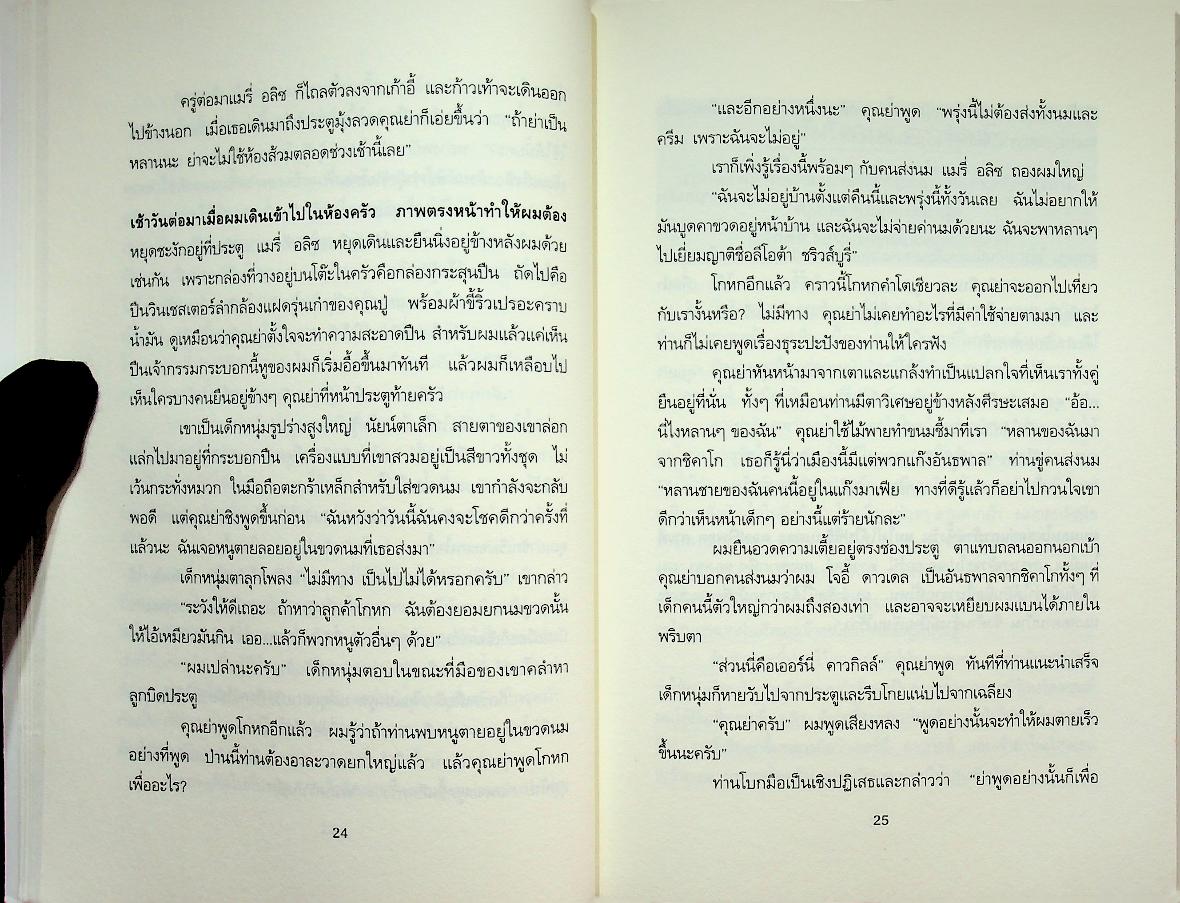 ครู่ต่อมาแมรี่ อลิซ ก็ไถลตัวลงจากเก้าอี้ และก้าวเท้าจะเดินออก
ไปข้างนอก เมื่อเธอเดินมาถึงประตูมุ้งลวดคุณย่าก็เอ่ยขึ้นว่า “ถ้าย่าเป็น
หลานนะ ย่าจะไม่ใช้ห้องส้วมตลอดช่วงเช้านี้เลย”
เช้าวันต่อมาเมื่อผมเดินเข้าไปในห้องครัว ภาพตรงหน้าทำให้ผมต้อง
หยุดชะงักอยู่ที่ประตู แมรี่ อลิซ หยุดเดินและยืนนิ่งอยู่ข้างหลังผมด้วย
เช่นกัน เพราะกล่องที่วางอยู่บนโต๊ะในครัวคือกล่องกระสุนปืน ถัดไปคือ
ปืนวินเชสเตอร์ลำกล้องแฝดรุ่นเก่าของคุณปู่ พร้อมผ้าขี้ริ้วเปรอะคราบ
น้ำมัน ดูเหมือนว่าคุณย่าตั้งใจจะทำความสะอาดปืน สำหรับผมแล้วแค่เห็น
ปืนเจ้ากรรมกระบอกนี้หูของผมก็เริ่มอื้อขึ้นมาทันที แล้วผมก็เหลือบไป
เห็นใครบางคนยืนอยู่ข้างๆ คุณย่าที่หน้าประตูท้ายครัว
เขาเป็นเด็กหนุ่มรูปร่างสูงใหญ่ นัยน์ตาเล็ก สายตาของเขาล่อก
แล่กไปมาอยู่ที่กระบอกปืน เครื่องแบบที่เขาสวมอยู่เป็นสีขาวทั้งชุด ไม่
เว้นกระทั่งหมวก ในมือถือตะกร้าเหล็กสำหรับใส่ขวดนม เขากำลังจะกลับ
พอดี แต่คุณย่าชิงพูดขึ้นก่อน “ฉันหวังว่าวันนี้ฉันคงจะโชคดีกว่าครั้งที่
แล้วนะ ฉันเจอหนูตายลอยอยู่ในขวดนมที่เธอส่งมา”
เด็กหนุ่มตาลุกโพลง “ไม่มีทาง เป็นไปไม่ได้หรอกครับ” เขากล่าว
“ระวังให้ดีเถอะ ถ้าหาว่าลูกค้าโกหก ฉันต้องยอมยกนมขวดนั้น
ให้ไอ้เหมียวมันกิน เออ...แล้วก็พวกหนูตัวอื่นๆ ด้วย”
“ผมเปล่านะครับ” เด็กหนุ่มตอบในขณะที่มือของเขาคลำหา
ลูกบิดประตู
คุณย่าพูดโกหกอีกแล้ว ผมรู้ว่าถ้าท่านพบหนูตายอยู่ในขวดนม
อย่างที่พูด ป่านนี้ท่านต้องอาละวาดยกใหญ่แล้ว แล้วคุณย่าพูดโกหก
เพื่ออะไร?
24
“และอีกอย่างหนึ่งนะ” คุณย่าพูด “พรุ่งนี้ไม่ต้องส่งทั้งนมและ
ครีม เพราะฉันจะไม่อยู่”
เราก็เพิ่งรู้เรื่องนี้พร้อมๆ กับคนส่งนม แมรี่ อลิซ ถองผมใหญ่
“ฉันจะไม่อยู่บ้านตั้งแต่คืนนี้และพรุ่งนี้ทั้งวันเลย ฉันไม่อยากให้
มันบูดคาขวดอยู่หน้าบ้าน และฉันจะไม่จ่ายค่านมด้วยนะ ฉันจะพาหลานๆ
ไปเยี่ยมญาติชื่อลีโอต้า ชริวส์บูรี่”
โกหกอีกแล้ว คราวนี้โกหกคำโตเชียวละ คุณย่าจะออกไปเที่ยว
กับเรางั้นหรือ? ไม่มีทาง คุณย่าไม่เคยทำอะไรที่มีค่าใช้จ่ายตามมา และ
ท่านก็ไม่เคยพูดเรื่องธุระปะปังของท่านให้ใครฟัง
คุณย่าหันหน้ามาจากเตาและแกล้งทำเป็นแปลกใจที่เห็นเราทั้งคู่
ยืนอยู่ที่นั่น ทั้งๆ ที่เหมือนท่านมีตาวิเศษอยู่ข้างหลังศีรษะเสมอ “อ้อ...
นี่ไงหลานๆ ของฉัน” คุณย่าใช้ไม้พายทำขนมชี้มาที่เรา “หลานของฉันมา
จากชิคาโก เธอก็รู้นี่ว่าเมืองนี้มีแต่พวกแก๊งอันธพาล” ท่านขู่คนส่งนม
“หลานชายของฉันคนนี้อยู่ในแก๊งมาเฟีย ทางที่ดีรู้แล้วก็อย่าไปกวนใจเขา
ดีกว่าเห็นหน้าเด็กๆ อย่างนี้แต่ร้ายนักละ”
ผมยืนอวดความเตี้ยอยู่ตรงช่องประตู ตาแทบถลนออกนอกเบ้า
คุณย่าบอกคนส่งนมว่าผม โจอี้ ดาวเดล เป็นอันธพาลจากชิคาโกทั้งๆ ที่
เด็กคนนี้ตัวใหญ่กว่าผมถึงสองเท่า และอาจจะเหยียบผมแบนได้ภายใน
พริบตา
“ส่วนนี่คือเออร์นี่ คาวกิลล์” คุณย่าพูด ทันทีที่ท่านแนะนำเสร็จ
เด็กหนุ่มก็หายวับไปจากประตูและรีบโกยแน่บไปจากเฉลียง
“คุณย่าครับ” ผมพูดเสียงหลง “พูดอย่างนั้นจะทำให้ผมตายเร็ว
ขึ้นนะครับ”
ท่านโบกมือเป็นเชิงปฏิเสธและกล่าวว่า “ย่าพูดอย่างนั้นก็เพื่อ
25